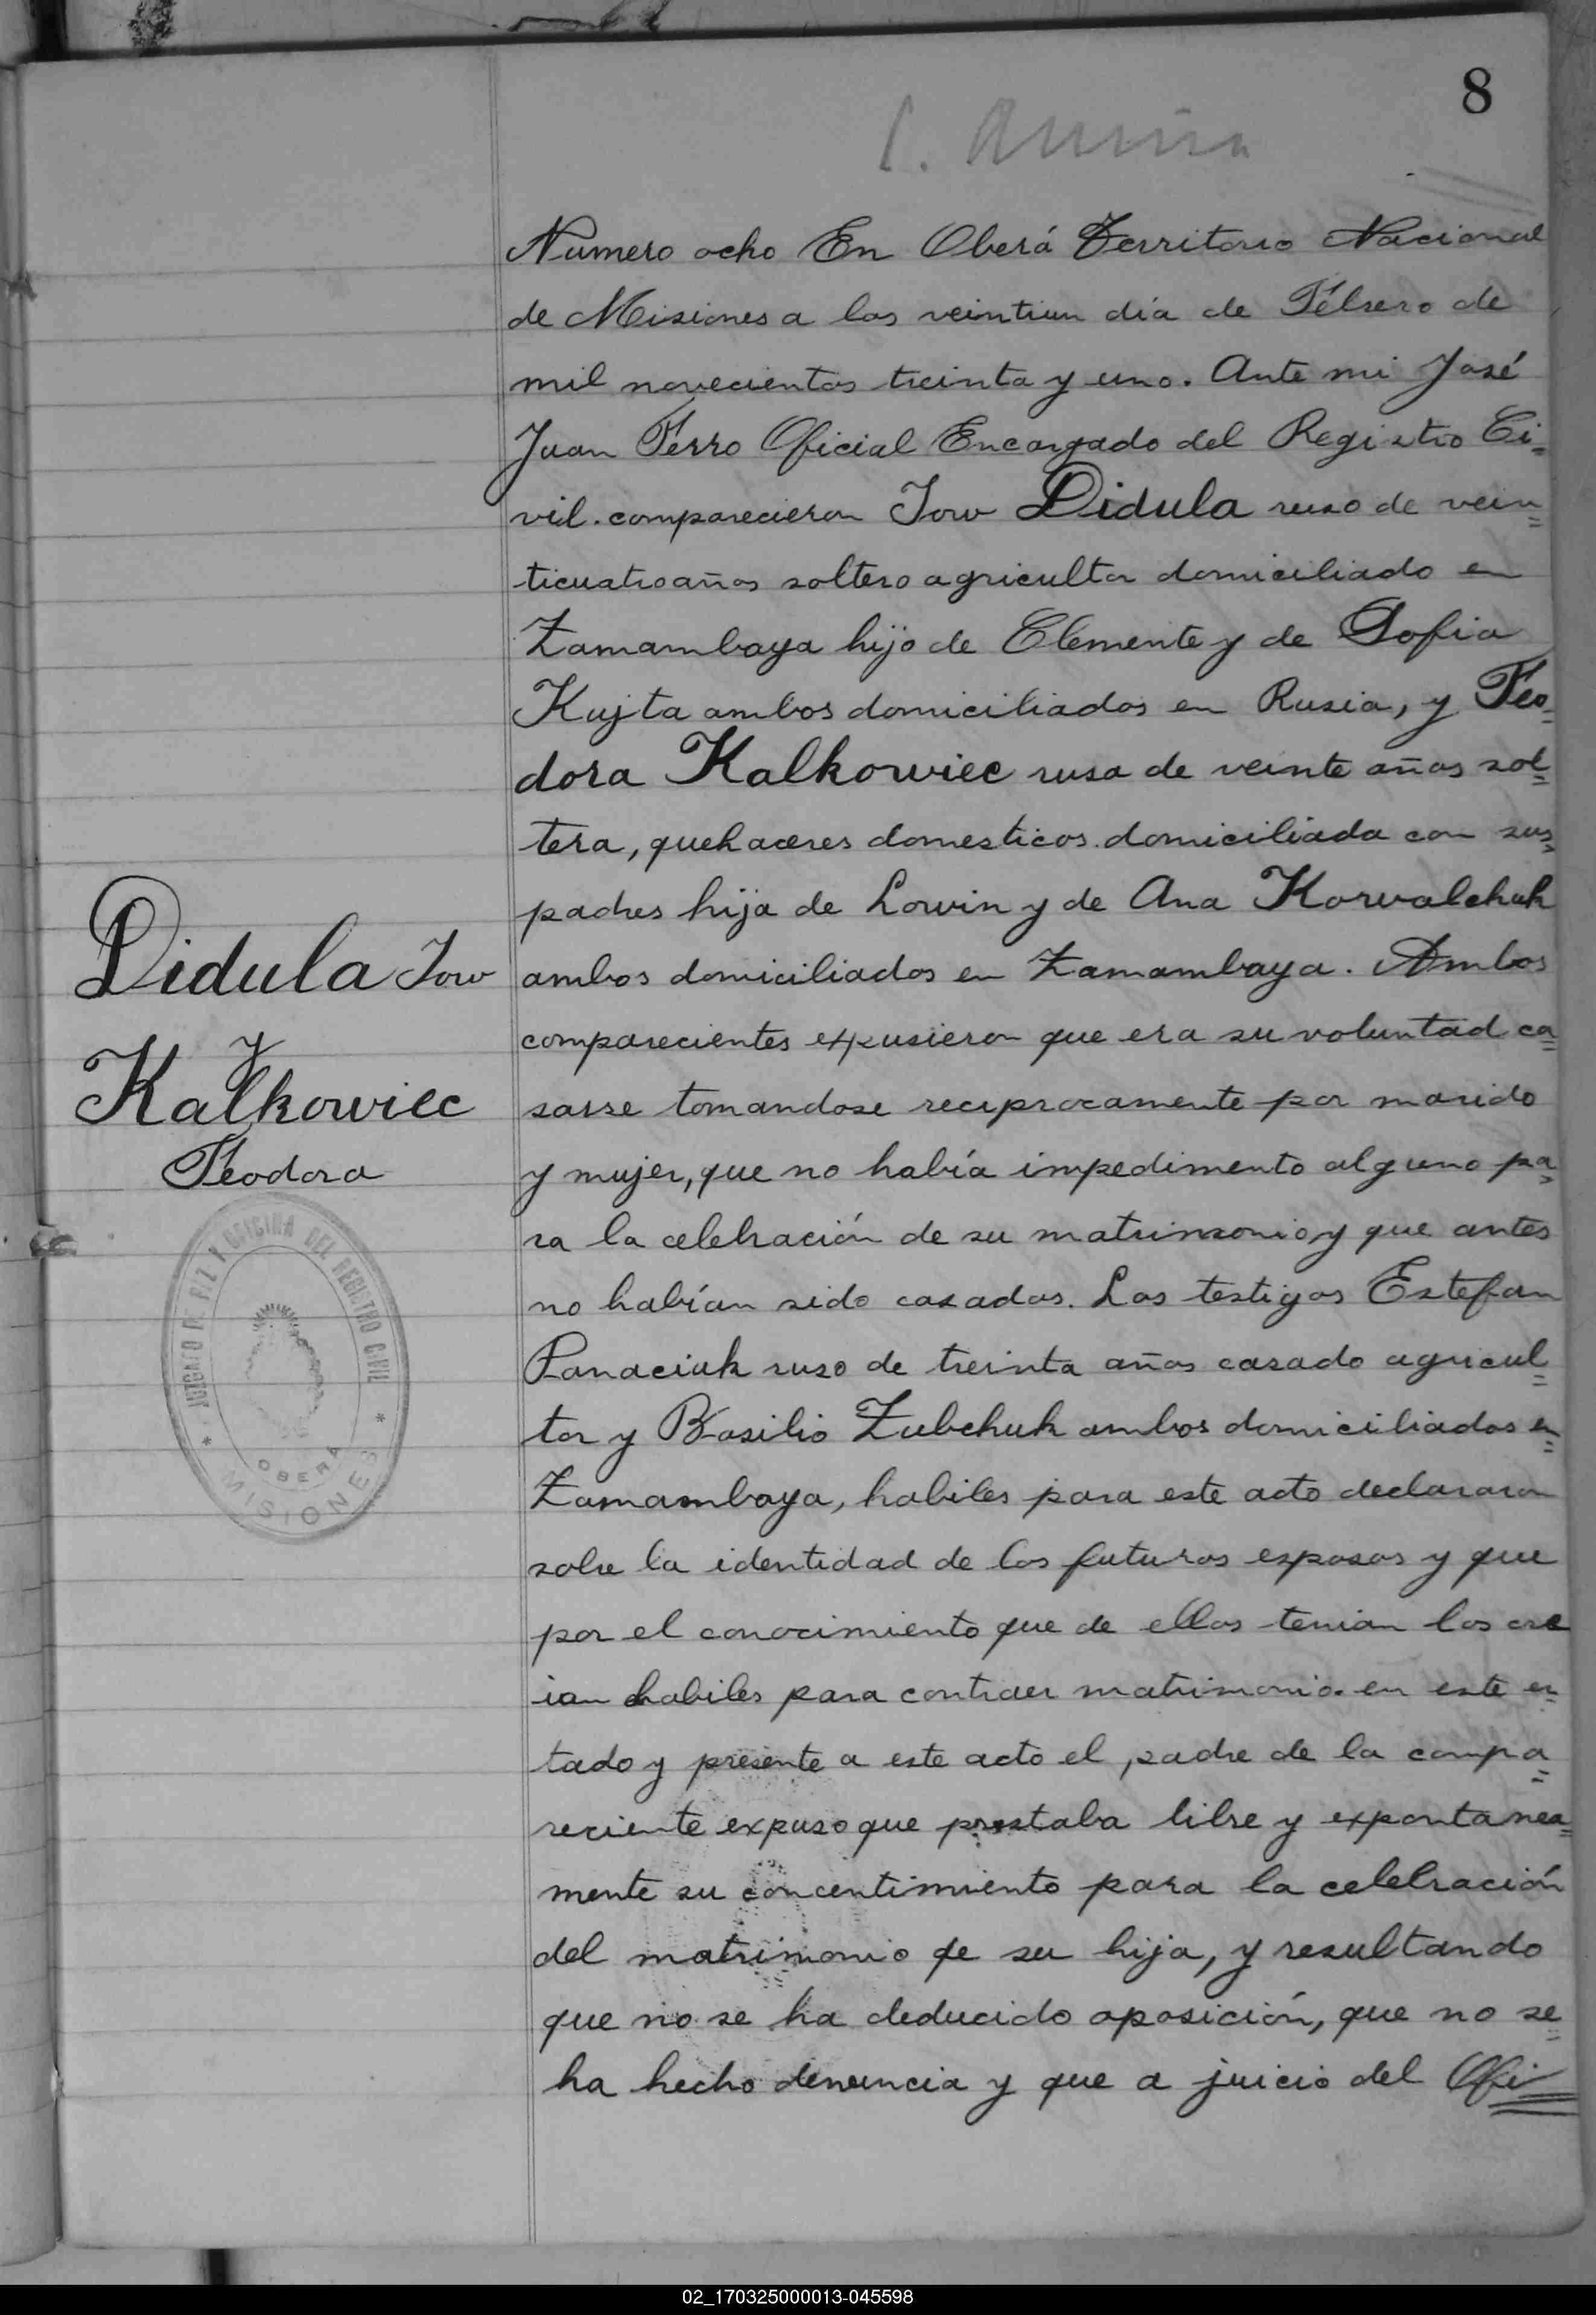 8
Numero ocho En Oberá Territorio Nacional
de Misiones a los veintiun día de Febrero de
mil novecientos treinta y uno. Ante mi José
Juan Ferro Oficial Encargado del Registro Ci=
vil. comparecieron Jow Didula ruso de vein=
ticuatro años soltero agricultor domiciliado en
Zamambaya hijo de Clemente y de Sofia
Kujta ambos domiciliados en Rusia, y Teo=
dora Kalkowiec rusa de veinte años sol=
tera, quehaceres domesticos. domiciliada con sus=
padres hija de Lowin y de Ana Korvalchuk
Didula Jow
ambos domiciliados en Zamambaya. Ambos
comparecientes expusieron que era su voluntad ca=
y
Kalkowiec
sarse tomandose reciprocamente por marido
Teodora
y mujer, que no había impedimento alguno pa=
ra la celebración de su matrimonio y que antes
no habían sido casados. Los testigos Estefan
Panaciuk ruso de treinta años casado agricul=
tor y Basilio Zubchuk ambos domiciliados en=
Zamambaya, habiles para este acto declararon
sobre la identidad de los futuros esposos y que
por el conocimiento que de ellos tenian los cre
ian habiles para contraer matrimonio. en este es=
tado y presente a este acto el padre de la compa=
reciente expuso que prestaba libre y expontanea=
mente su concentimiento para la celebración
del matrimonio de su hija, y resultando
que no se ha deducido oposición, que no se=
ha hecho denuncia y que a juicio del Ofi=
JUZGADO DE PAZ Y OFICINA DEL REGISTRO CIVIL
* OBERA *
MISIONES
02_170325000013-045598